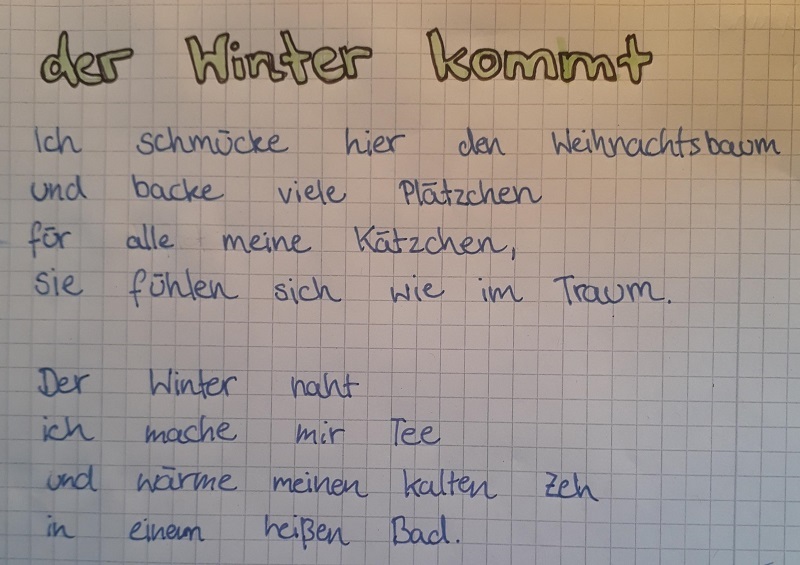 der Winter kommt
Ich schmücke hier den Weihnachtsbaum
und backe viele Plätzchen
für alle meine Kätzchen,
sie fühlen sich wie im Traum.
Der Winter naht
ich mache mir Tee
und wärme meinen kalten Zeh
in einem heißen Bad.